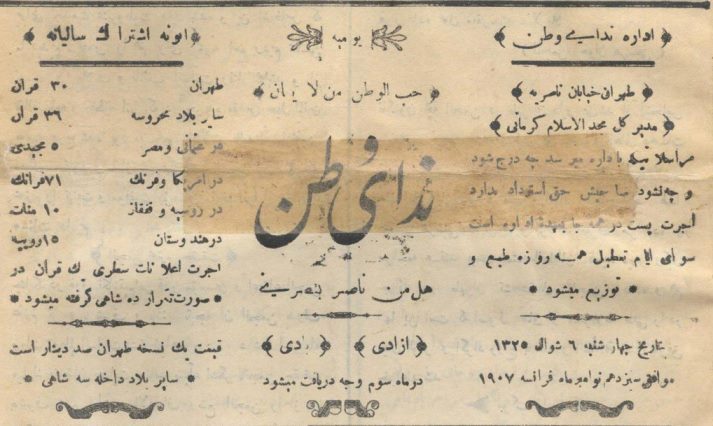 اداره ندای وطن
طهران خیابان ناصریه
مدیر کل مجد الاسلام کرمانی
مراسلاتیکه باداره میرسد چه درج شود
و چه نشود صاحبش حق استرداد ندارد
اجرت پست در همه جا بعهدهٔ اداره است
سوای ایام تعطیل همه روزه طبع و
توزیع میشود
بتاریخ چهارشنبه ۶ شوال ۱۳۲۵
موافق سیزدهم نوامبر ماه فرانسه ۱۹۰۷
یومیه
حب الوطن من الایمان
ندای وطن
هل من ناصر ینصرنی
ازادی
در ماه سوم وجه دریافت میشود
ابونه اشتراک سالیانه
طهران ۳۰ قران
سایر بلاد محروسه ۳۶ قران
در عثمانی و مصر ۵ مجیدی
در امریکا و فرنک ۷۱ فرانک
در روسیه و قفقاز ۱۰ منات
در هندوستان ۱۵ روپیه
اجرت اعلانات سطری یک قران در
صورت تکرار ده شاهی گرفته میشود
قیمت یک نسخه طهران صد دینار است
سایر بلاد داخله سه شاهی